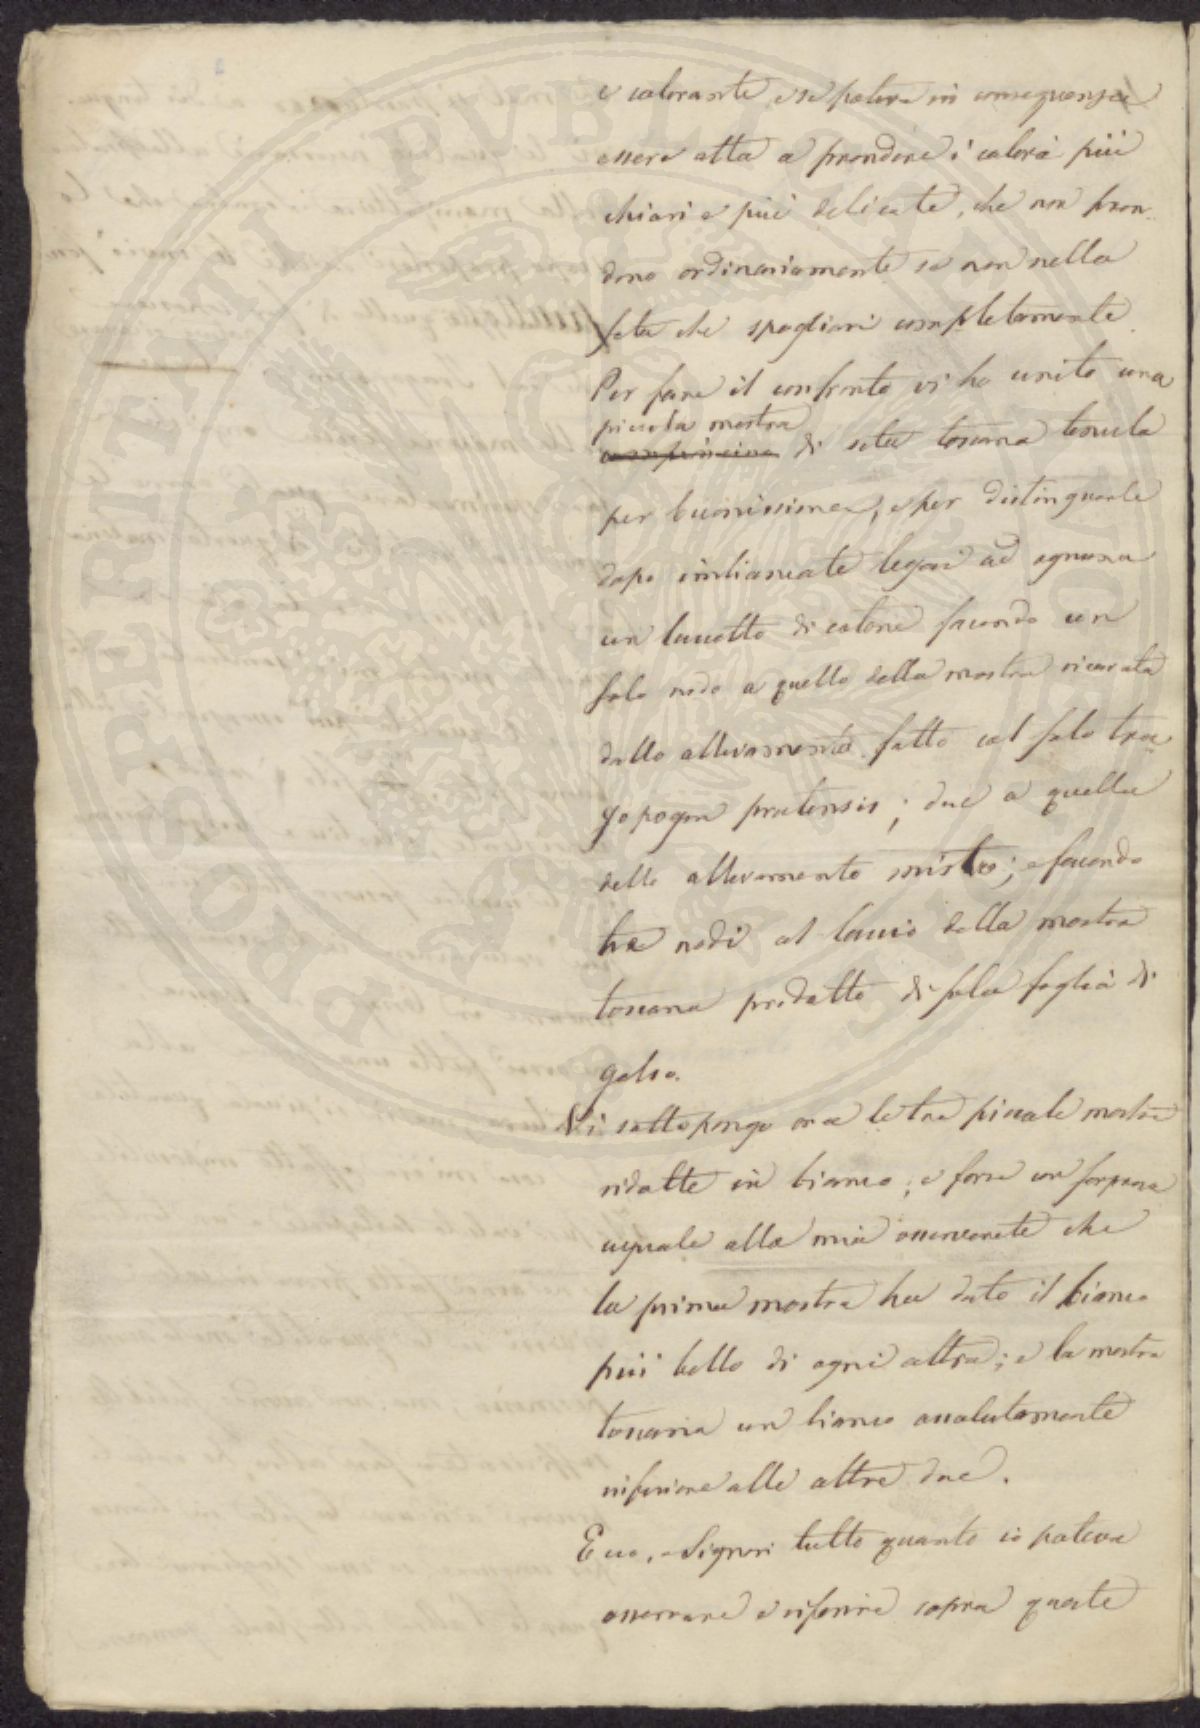 e colorante, e se poteva in conseguenza
essere atta a prendere i colori più
chiari e più delicati, che non pren-
dono ordinariamente se non nella
seta che spogliasi completamente.
Per fare il confronto vi ho unito una
piccola mostra
di seta toscana tenuta
per buonissima, e per distinguerle
dopo imbiancate legai ad ognuna
un laccetto di cotone facendo un
solo nodo a quello della mostra ricavata
dallo allevamento fatto col solo tra-
gopogon pratensis; due a quella
dello allevamento misto; e facendo
tre nodi al laccio della mostra
toscana prodotta di sola foglia di
gelso.
Vi sottopongo ora le tre piccole mostre
ridotte in bianco; e forse con sorpresa
uguale alla mia osserverete che
la prima mostra ha dato il bianco
più bello di ogni altra; e la mostra
toscana un bianco assolutamente
inferiore alle altre due.
Ecco, o Signori tutto quanto io poteva
osservare e riferire sopra queste
POSPERITATI PVBLICAE